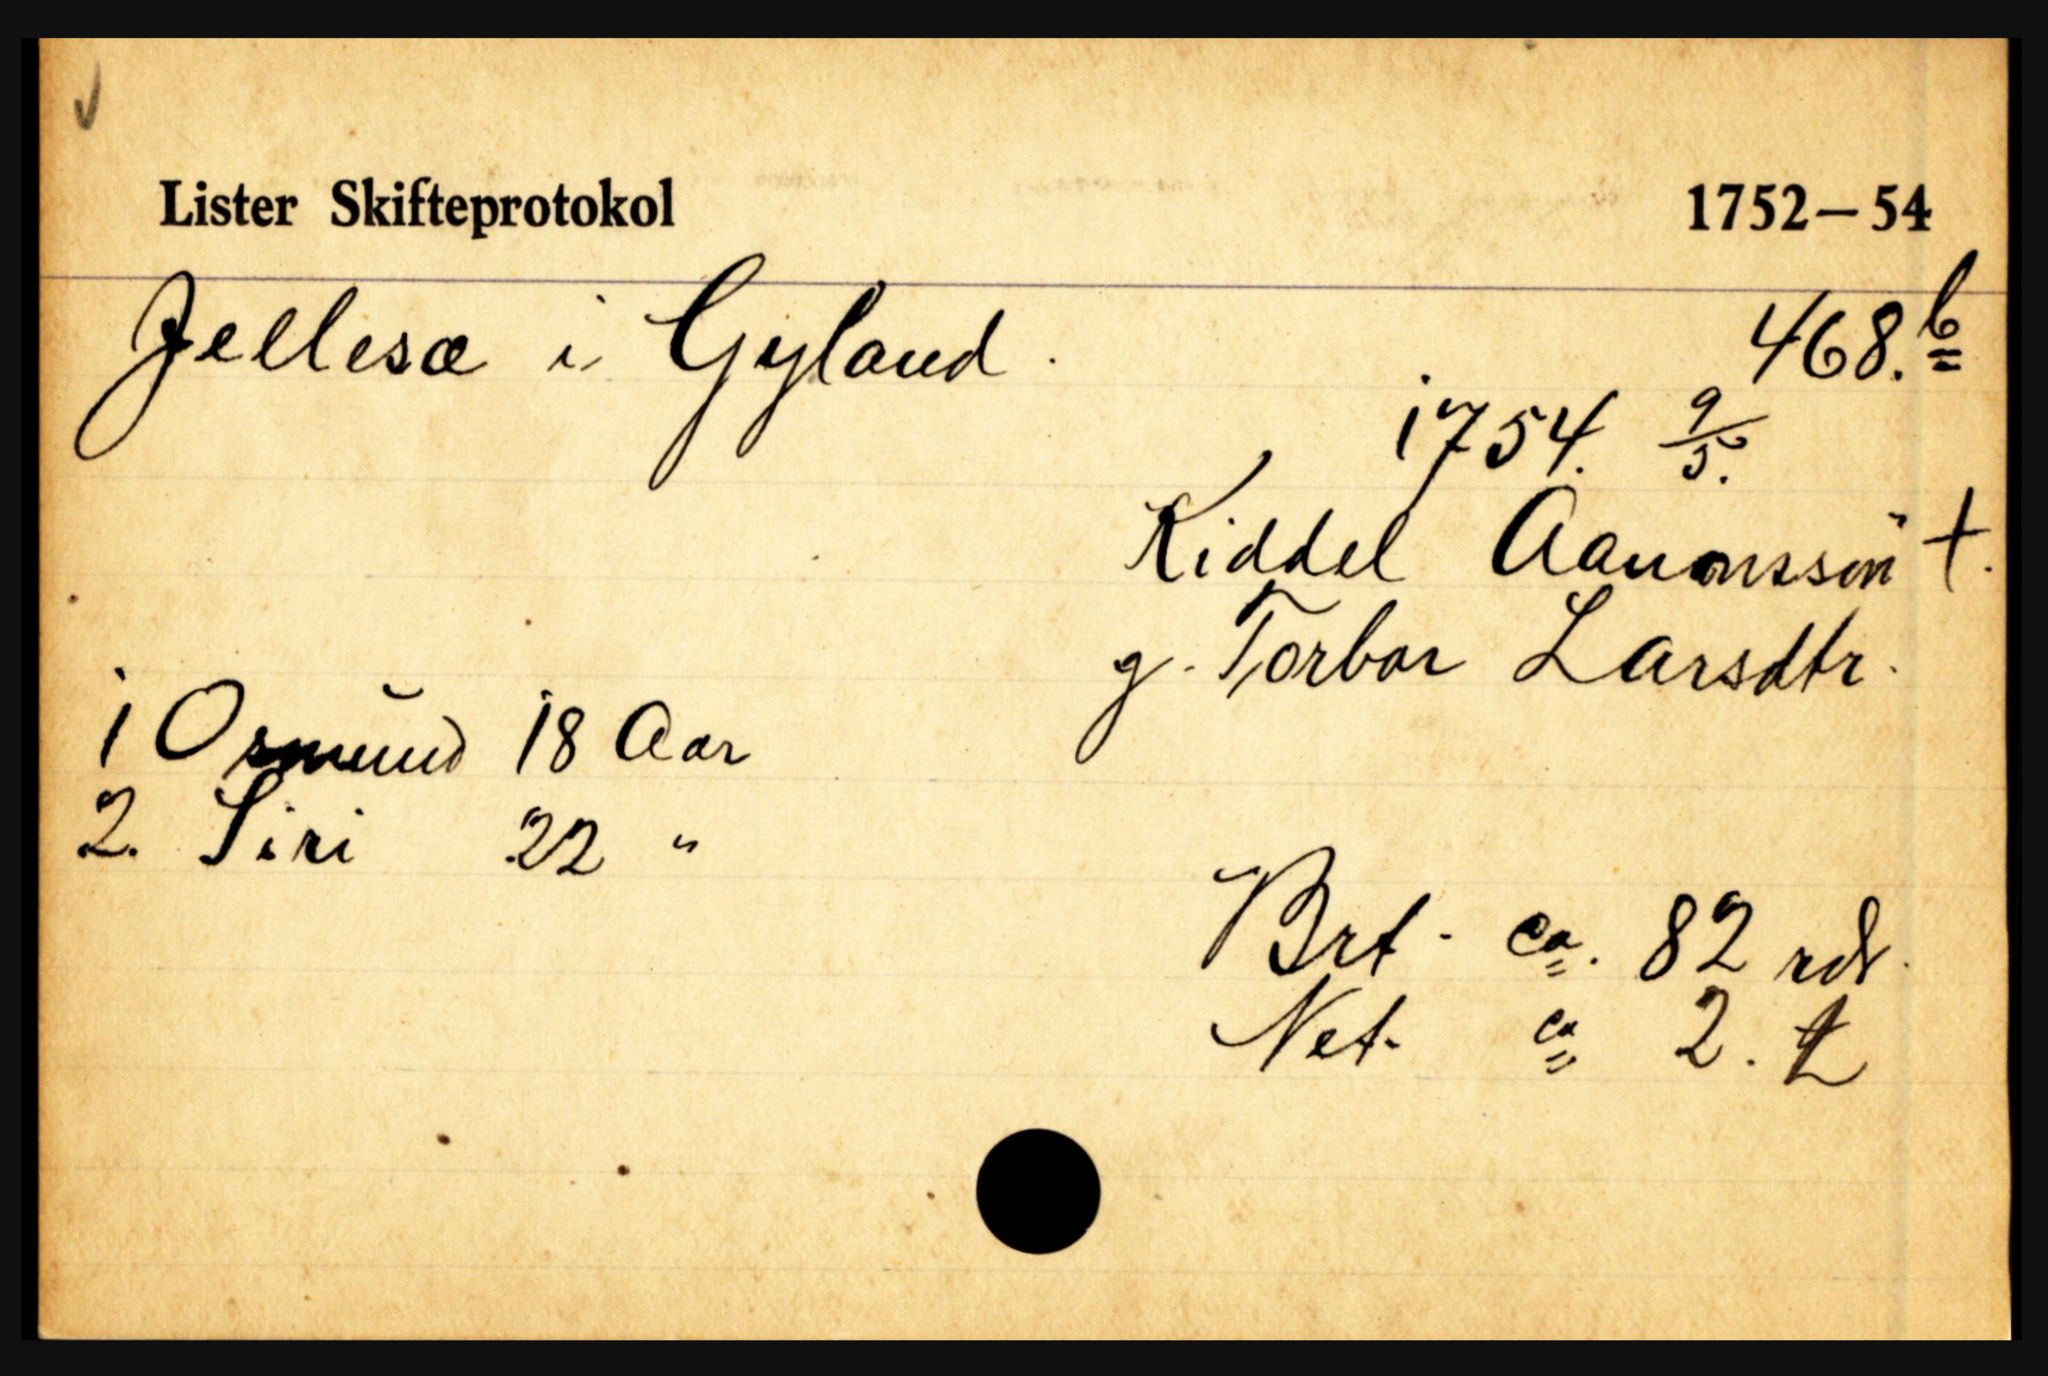 Lister Skifteprotokol 1752–54
Jellesæ i Gyland. 468.b
1754. 9/5.
Kiddel Aanonssön †.
g. Torbor Larsdtr.
1 Osmund 18 Aar
2. Siri 22 "
Brt. ca. 82 rdr.
Net. ca 2.